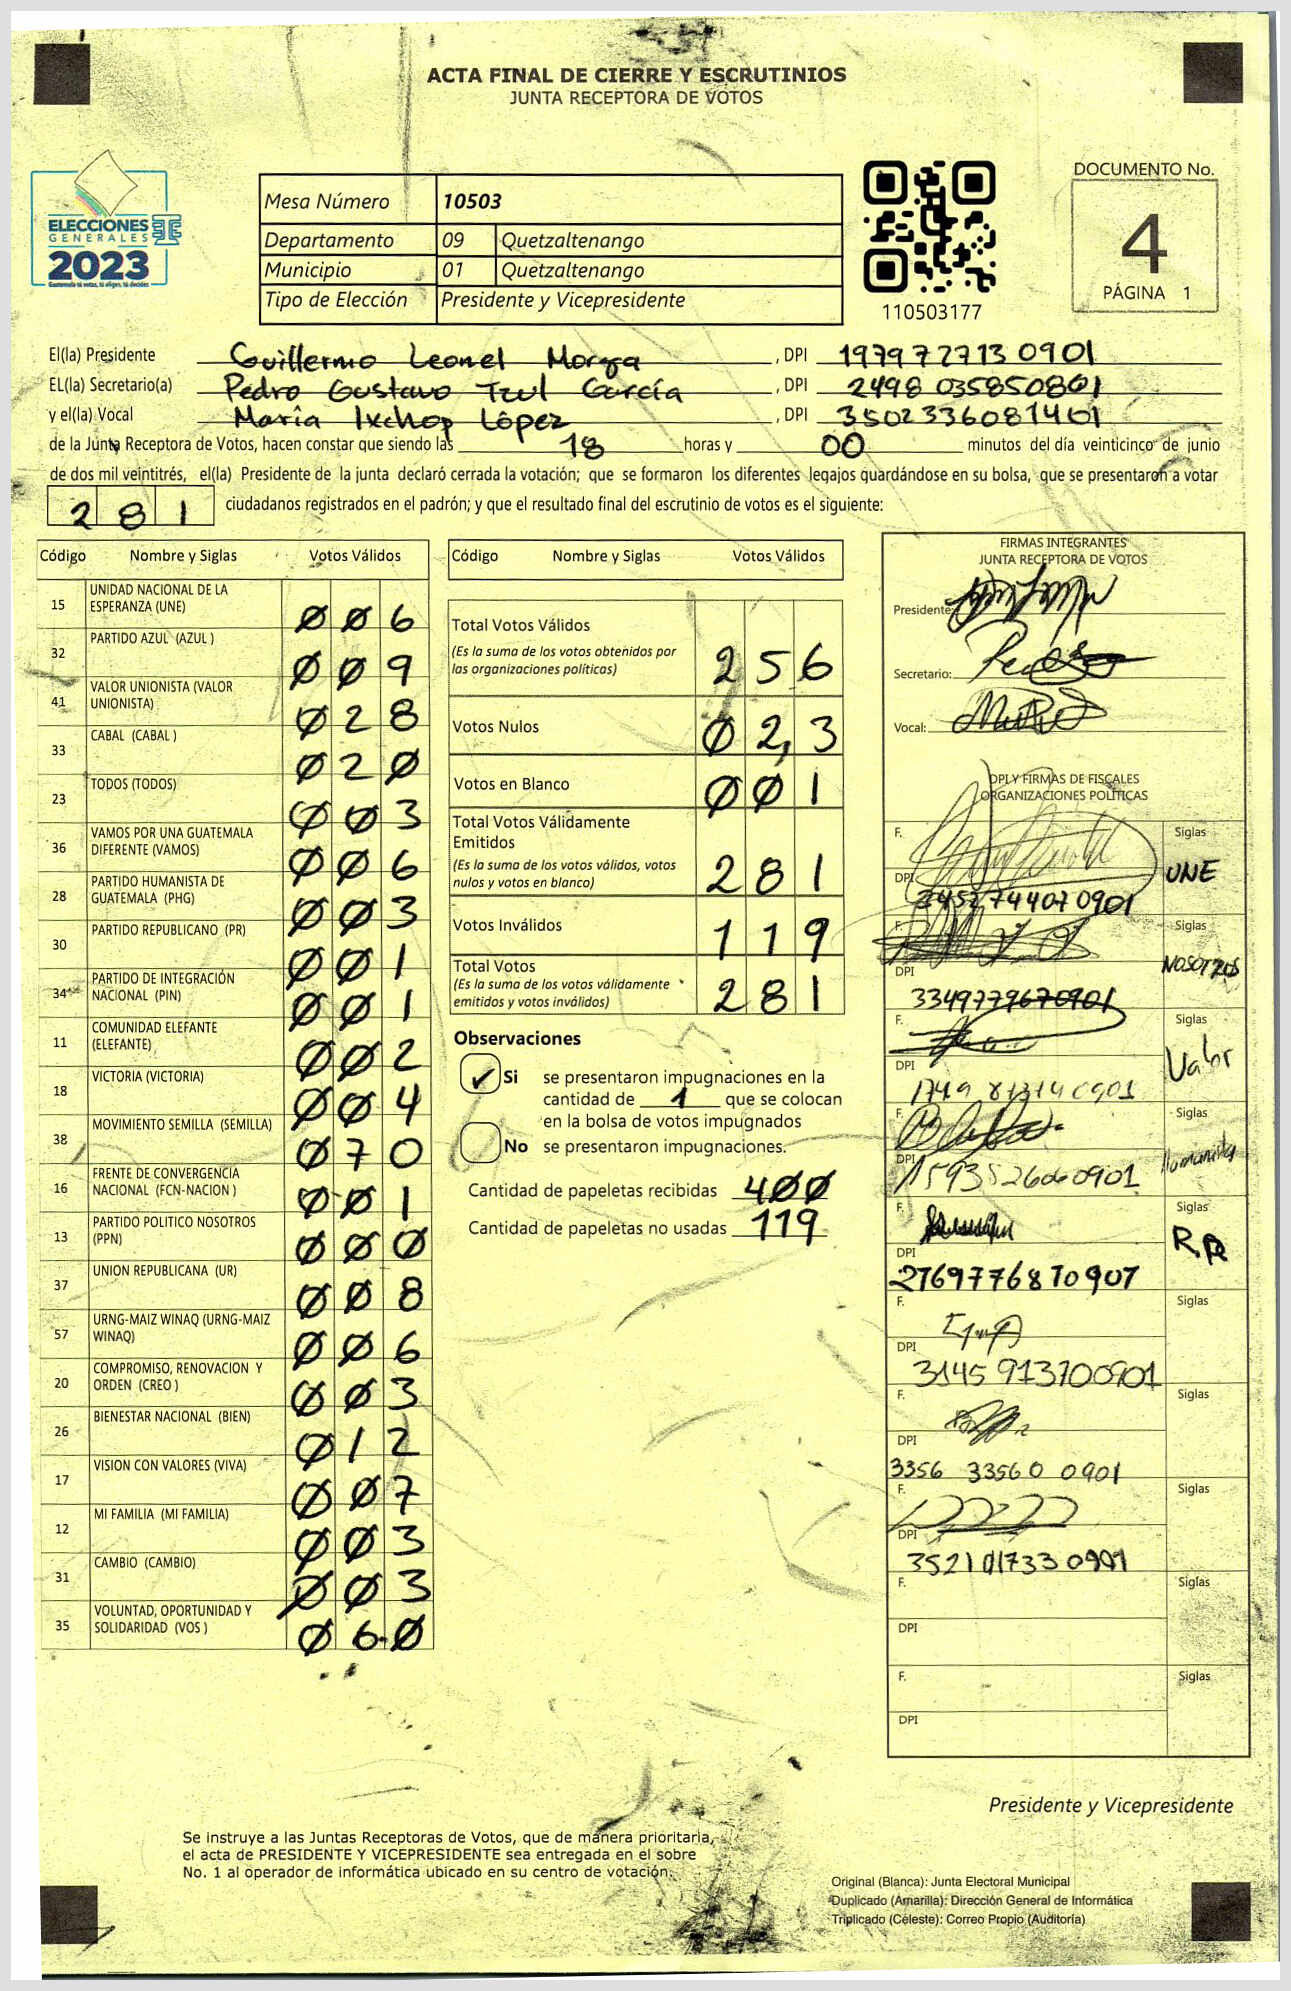 ACTA FINAL DE CIERRE Y ESCRUTINIOS
JUNTA RECEPTORA DE VOTOS
ELECCIONES
GENERALES
2023
Guatemala tú votas, tú eliges, tú decides
Mesa Número 10503
Departamento 09 Quetzaltenango
Municipio 01 Quetzaltenango
Tipo de Elección Presidente y Vicepresidente
110503177
DOCUMENTO No.
4
PÁGINA 1
El(la) Presidente Guillermo Leonel , DPI 1979727130901
EL(la) Secretario(a) Pedro Gustavo Tzul García , DPI 2498 035850801
y el(la) Vocal María Ixchop López , DPI 3502336081401
de la Junta Receptora de Votos, hacen constar que siendo las 18 horas y 00 minutos del día veinticinco de junio
de dos mil veintitrés, el(la) Presidente de la junta declaró cerrada la votación; que se formaron los diferentes legajos guardándose en su bolsa, que se presentaron a votar
281 ciudadanos registrados en el padrón; y que el resultado final del escrutinio de votos es el siguiente:
Código Nombre y Siglas Votos Válidos
15 UNIDAD NACIONAL DE LA ESPERANZA (UNE) 006
32 PARTIDO AZUL (AZUL ) 009
41 VALOR UNIONISTA (VALOR UNIONISTA) 028
33 CABAL (CABAL ) 020
23 TODOS (TODOS) 003
36 VAMOS POR UNA GUATEMALA DIFERENTE (VAMOS) 006
28 PARTIDO HUMANISTA DE GUATEMALA (PHG) 003
30 PARTIDO REPUBLICANO (PR) 001
34 PARTIDO DE INTEGRACIÓN NACIONAL (PIN) 001
11 COMUNIDAD ELEFANTE (ELEFANTE) 002
18 VICTORIA (VICTORIA) 004
38 MOVIMIENTO SEMILLA (SEMILLA) 070
16 FRENTE DE CONVERGENCIA NACIONAL (FCN-NACION ) 001
13 PARTIDO POLITICO NOSOTROS (PPN) 000
37 UNION REPUBLICANA (UR) 008
57 URNG-MAIZ WINAQ (URNG-MAIZ WINAQ) 006
20 COMPROMISO, RENOVACION Y ORDEN (CREO ) 003
26 BIENESTAR NACIONAL (BIEN) 012
17 VISION CON VALORES (VIVA) 007
12 MI FAMILIA (MI FAMILIA) 003
31 CAMBIO (CAMBIO) 003
35 VOLUNTAD, OPORTUNIDAD Y SOLIDARIDAD (VOS ) 060
Código Nombre y Siglas Votos Válidos
Total Votos Válidos
(Es la suma de los votos obtenidos por
las organizaciones políticas) 256
Votos Nulos 023
Votos en Blanco 001
Total Votos Válidamente
Emitidos
(Es la suma de los votos válidos, votos
nulos y votos en blanco) 281
Votos Inválidos 119
Total Votos
(Es la suma de los votos válidamente
emitidos y votos inválidos) 281
Observaciones
Si se presentaron impugnaciones en la
cantidad de 1 que se colocan
en la bolsa de votos impugnados
No se presentaron impugnaciones.
Cantidad de papeletas recibidas 400
Cantidad de papeletas no usadas 119
FIRMAS INTEGRANTES
JUNTA RECEPTORA DE VOTOS
Presidente:
Secretario:
Vocal:
DPI Y FIRMAS DE FISCALES
ORGANIZACIONES POLÍTICAS
F. Siglas
DPI 2452744070901 UNE
F. Siglas
DPI 3349779670901 NOSOTROS
F. Siglas
DPI Valor
F. Siglas
DPI 1593526060901 Humanista
F. Siglas
DPI 2769776870907 R.R
F. Siglas
DPI 3145 913700901
F. Siglas
DPI 3356 33560 0901
F. Siglas
DPI 3521017330901
F. Siglas
DPI
F. Siglas
DPI
Presidente y Vicepresidente
Se instruye a las Juntas Receptoras de Votos, que de manera prioritaria,
el acta de PRESIDENTE Y VICEPRESIDENTE sea entregada en el sobre
No. 1 al operador de informática ubicado en su centro de votación.
Original (Blanca): Junta Electoral Municipal
Duplicado (Amarilla): Dirección General de Informática
Triplicado (Celeste): Correo Propio (Auditoría)